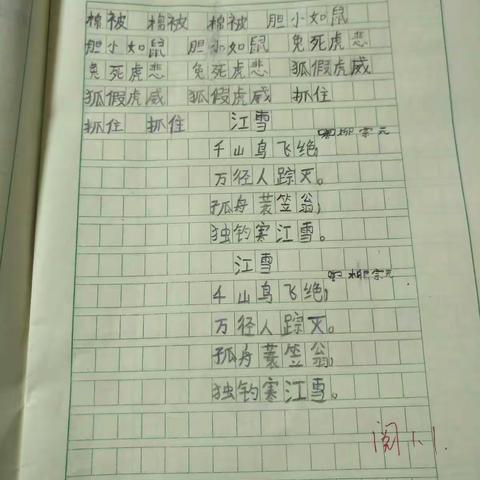 棉被 棉被 棉被 胆小如鼠
胆小如鼠 胆小如鼠 兔死虎悲
兔死虎悲 兔死虎悲 狐假虎威
狐假虎威 狐假虎威 抓住
抓住 抓住 江雪
柳宗元
千山鸟飞绝,
万径人踪灭。
孤舟蓑笠翁,
独钓寒江雪。
江雪
柳宗元
千山鸟飞绝,
万径人踪灭。
孤舟蓑笠翁,
独钓寒江雪。
阅 1.1.